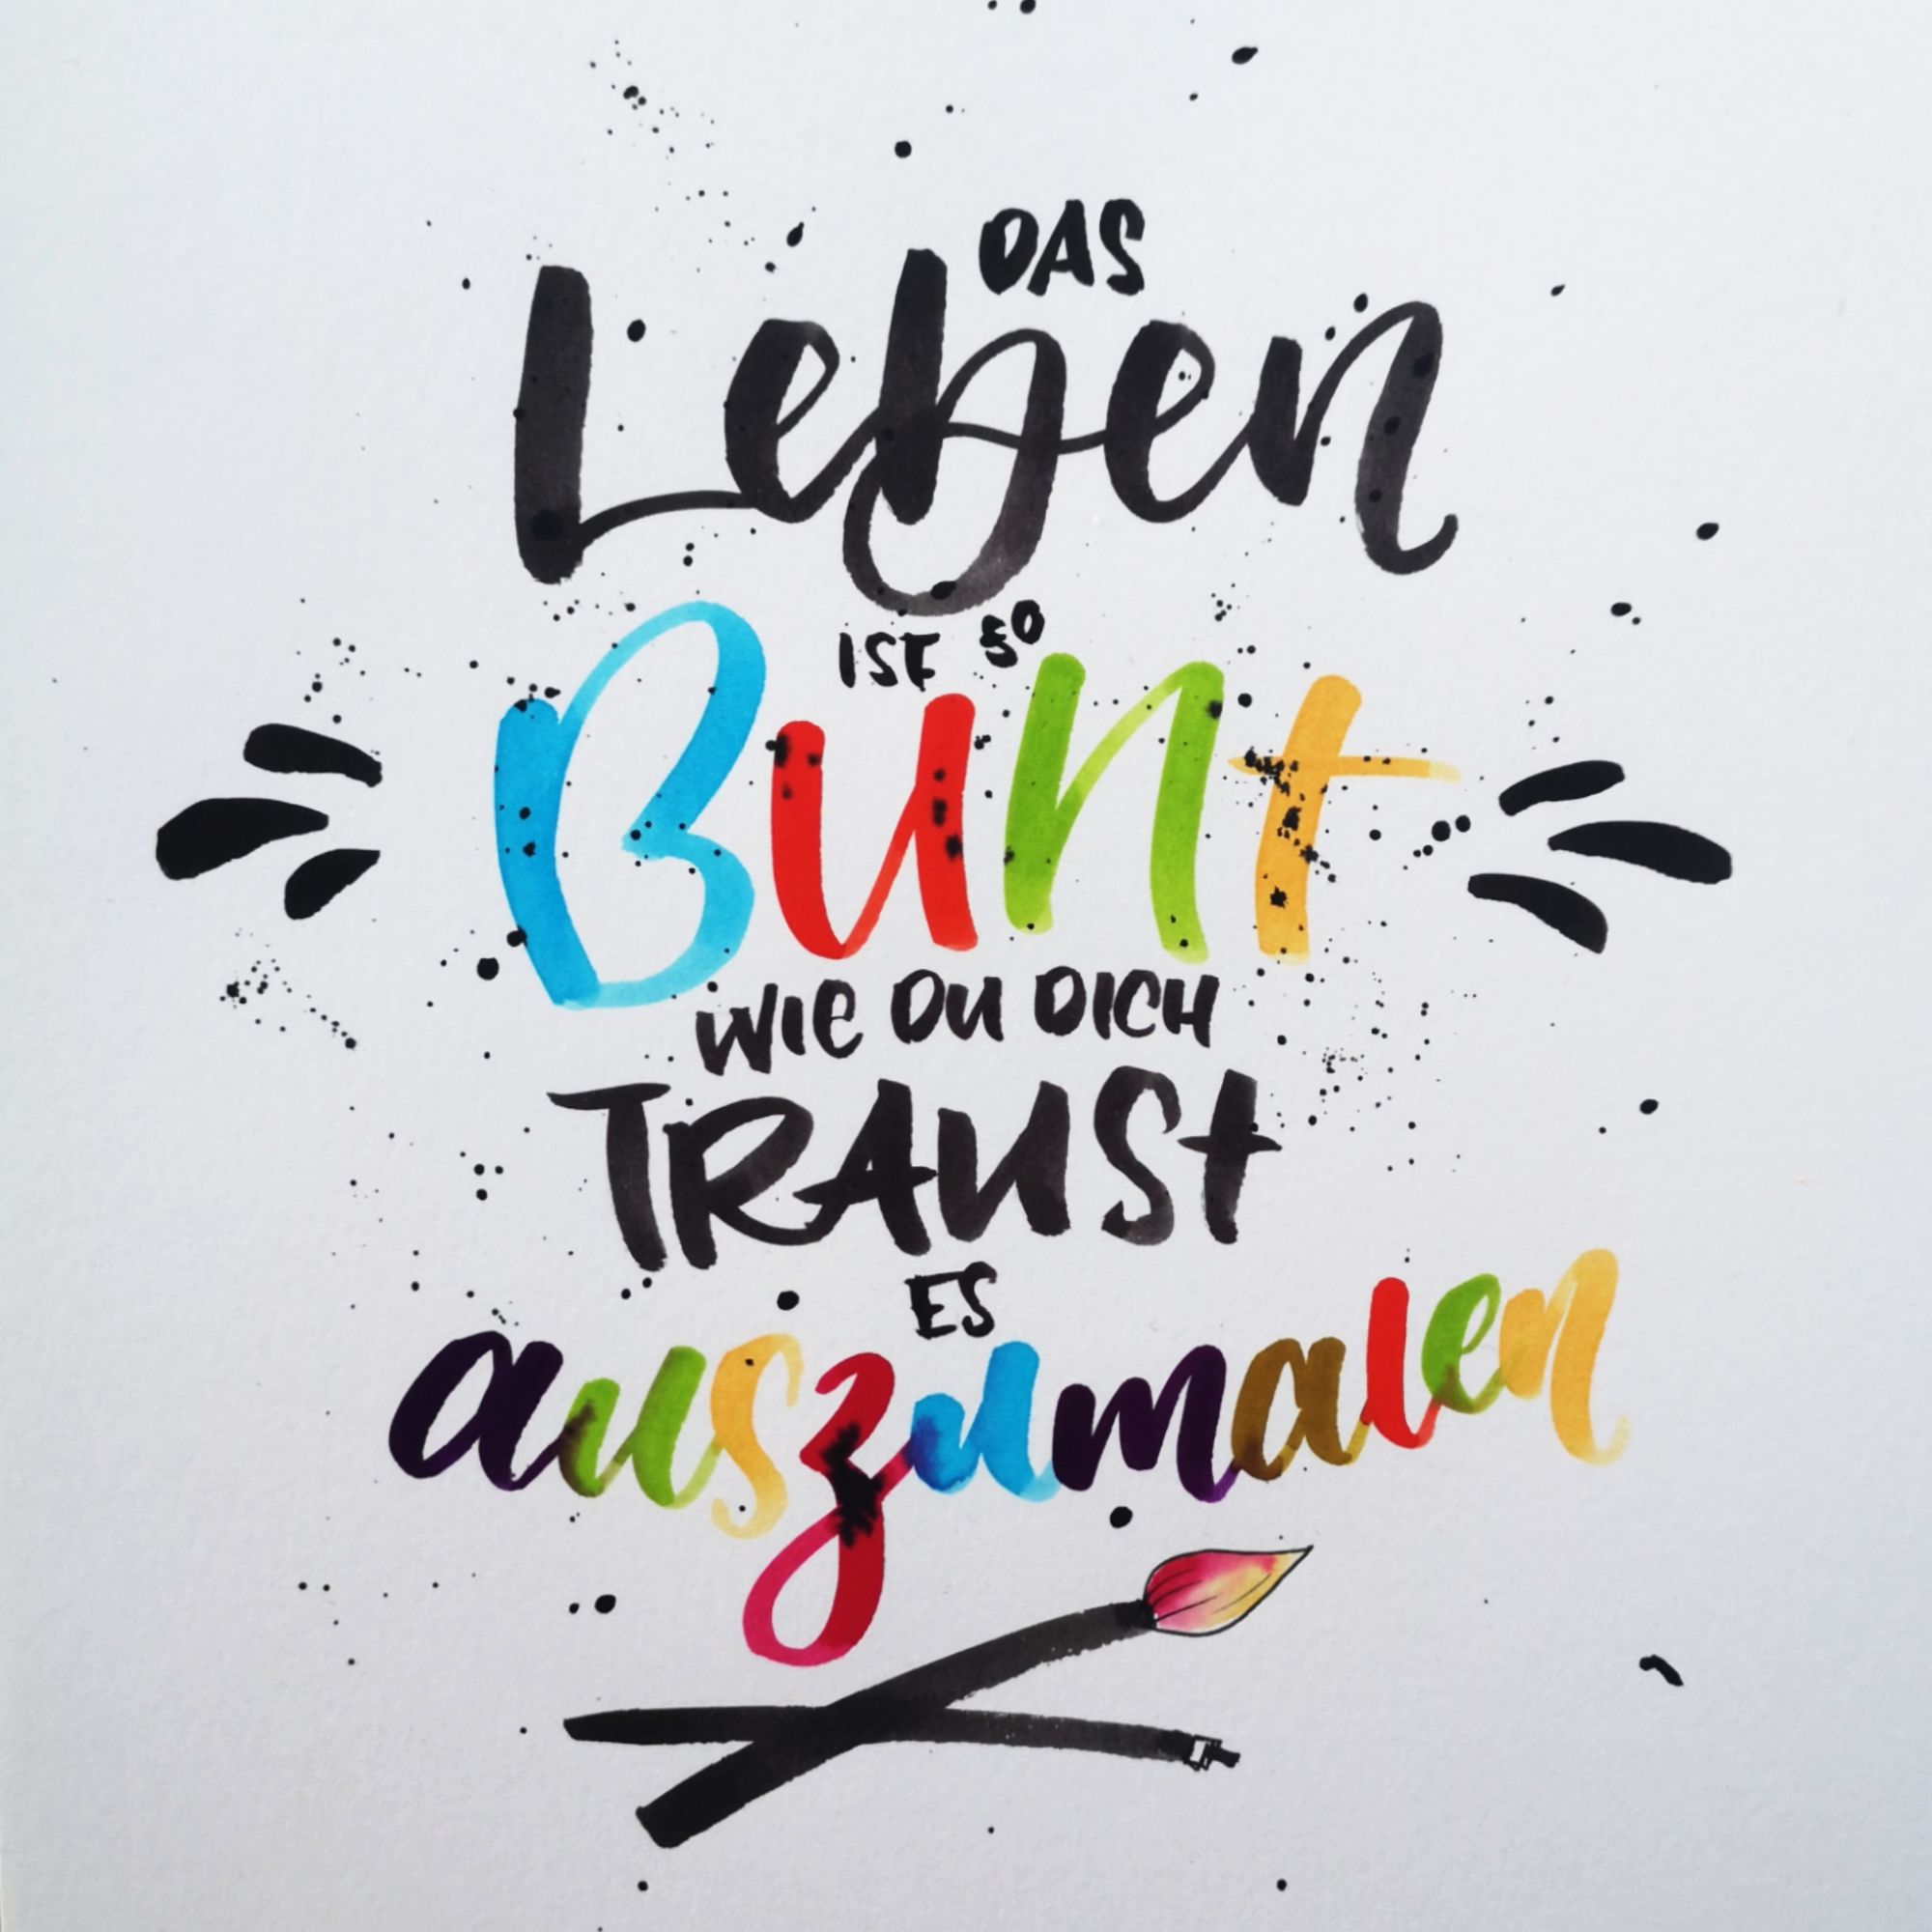 DAS
Leben
IST SO
Bunt
WIE DU DICH
TRAUSt
ES
auszumalen